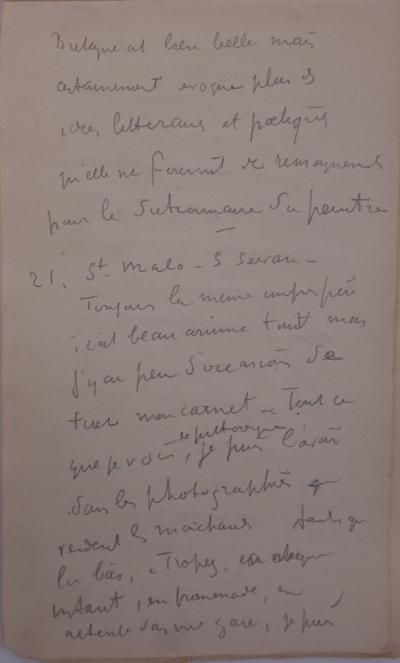 Bretagne est bien belle mais
certainement evoque plus des
idees litteraires et poetiques
qu'elle ne fournit de renseignements
pour le dictionnaire du peintre
21. St. Malo - S Servan -
Toujours la meme
ici est beau comme tout mais
j'y ai peu d'occasion de
tirer mon carnet - Tout ce
que je vois, de pittoresque, je puis l'avoir
dans les photographies que
vendent les marchands tandis que
la bas, a Tropez, a chaque
instant, en promenade, en
attente dans une gare, je puis